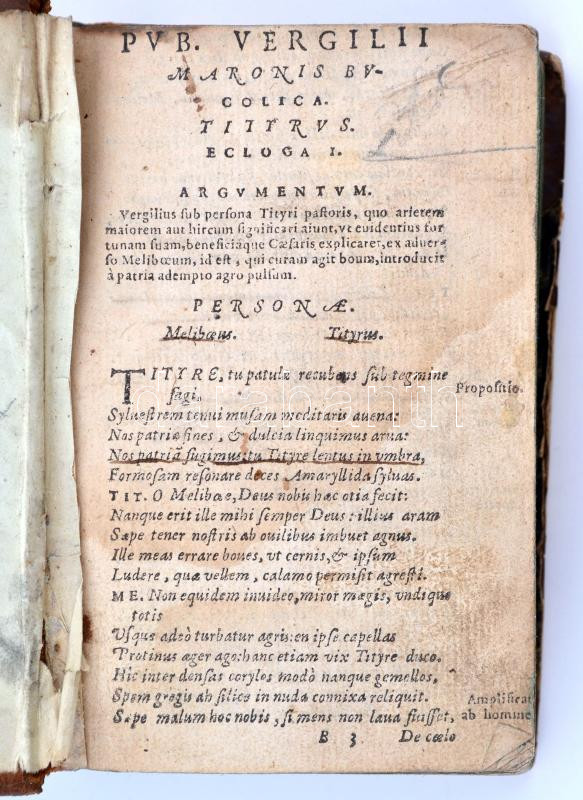 PVB. VERGILII
MARONIS BV-
COLICA.
TITYRVS.
ECLOGA I.
ARGVMENTVM.
Vergilius sub persona Tityri pastoris, quo arietem
maiorem aut hircum significari aiunt, vt euidentius for
tunam suam, beneficiáque Cæsaris explicaret, ex aduer
so Melibœum, id est, qui curam agit boum, introducit
à patria adempto agro pulsum.
PERSONÆ.
Melibœus. Tityrus.
TITYRE, tu patulæ recubans sub tegmine
fagi, Propositio.
Syluestrem tenui musam meditaris auena:
Nos patriæ fines, & dulcia linquimus arua:
Nos patriã fugimus: tu Tityre lentus in vmbra,
Formosam resonare doces Amaryllida syluas.
TIT. O Melibœe, Deus nobis hæc otia fecit:
Nanque erit ille mihi semper Deus: illius aram
Sæpe tener nostris ab ouilibus imbuet agnus.
Ille meas errare boues, vt cernis, & ipsum
Ludere, quæ vellem, calamo permisit agresti.
ME. Non equidem inuideo, miror mægis, vndique
totis
Vsque adeò turbatur agris: en ipse capellas
Protinus æger ago: hanc etiam vix Tityre duco.
Hic inter densas corylos modò nanque gemellos,
Spem gregis ah silice in nuda connixa reliquit. Amplificat
Sæpe malum hoc nobis, si mens non læua fuisset, ab homine
B 3 De cœlo